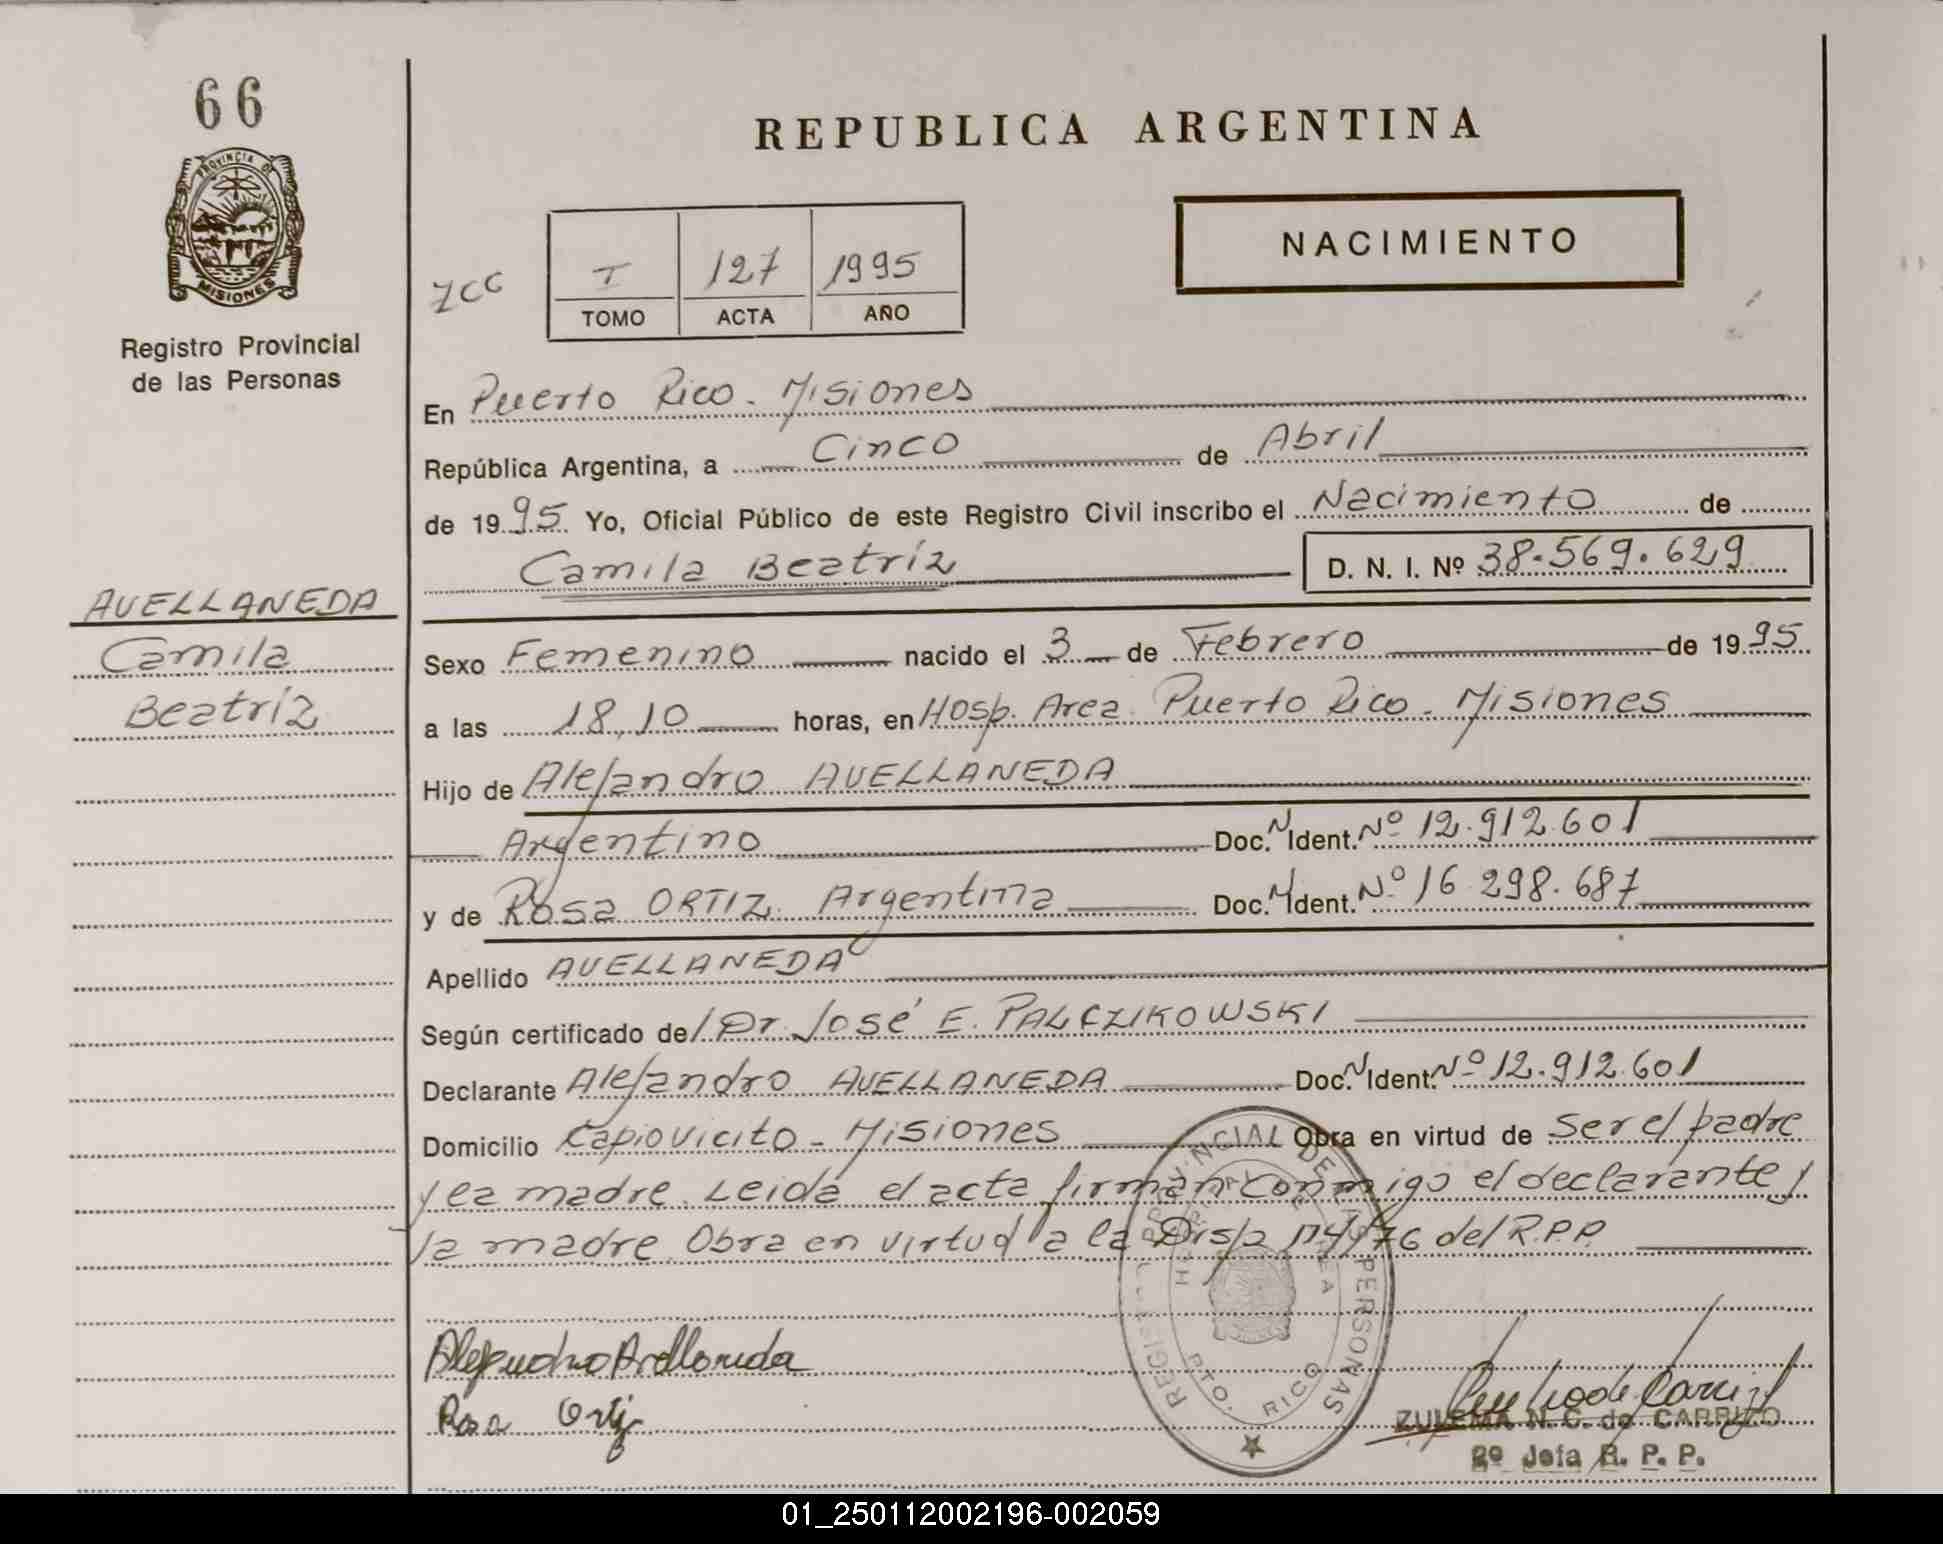 66
PROVINCIA DE
MISIONES
Registro Provincial
de las Personas
REPUBLICA ARGENTINA
NACIMIENTO
ZCC
I 127 1995
TOMO ACTA AÑO
En Puerto Rico - Misiones
República Argentina, a Cinco de Abril
de 1995 Yo, Oficial Público de este Registro Civil inscribo el Nacimiento de
Camila Beatríz D. N. I. Nº 38.569.629
AVELLANEDA
Camila
Beatríz
Sexo Femenino nacido el 3 de Febrero de 1995
a las 18,10 horas, en Hosp. Area Puerto Rico - Misiones
Hijo de Alejandro AVELLANEDA
Argentino Doc. N Ident. Nº 12.912.601
y de Rosa ORTIZ Argentina Doc. N Ident. Nº 16.298.687
Apellido AVELLANEDA
Según certificado del Dr. José E. PALCZIKOWSKI
Declarante Alejandro AVELLANEDA Doc. N Ident. Nº 12.912.601
Domicilio Capiovicito - Misiones Obra en virtud de ser el padre
y la madre. Leida el acta firman conmigo el declarante y
la madre. Obra en virtud a la Disp. 174/76 del R.P.P.
REGISTRO PROVINCIAL DE LAS PERSONAS
HOSPITAL AREA
PTO. RICO
Alejandro Avellaneda
Rosa Ortiz
ZULEMA N. C. de CARRIZO
2º Jefa R. P. P.
01_250112002196-002059